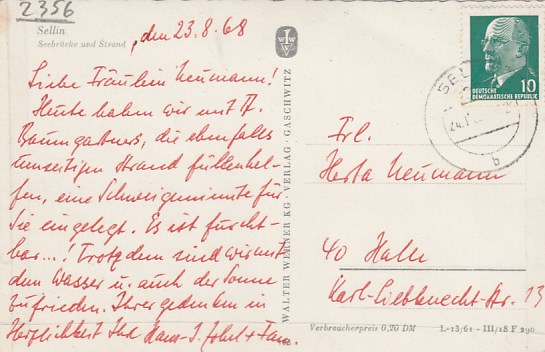 2356
Sellin
Seebrücke und Strand
, den 23.8.68
Liebe Fräulein Neumann!
Heute haben wir mit
Baumgartners, die ebenfalls
Strand füllen hel-
fen, eine Schweigeminute für
Sie eingelegt. Es ist furcht-
bar...! Trotzdem sind wir mit
dem Wasser u. auch der Sonne
zufrieden. Ihrer gedenken in
Herzlichkeit Ihr Hans-J. + Fam.
WALTER WERNER KG · VERLAG · GASCHWITZ
10
DEUTSCHE
DEMOKRATISCHE REPUBLIK
SEL
24.
b
Frl.
Herta Neumann
40 Halle
Karl-Liebknecht-Str. 13
Verbraucherpreis 0,20 DM
L-13/61 - III/18 F 290